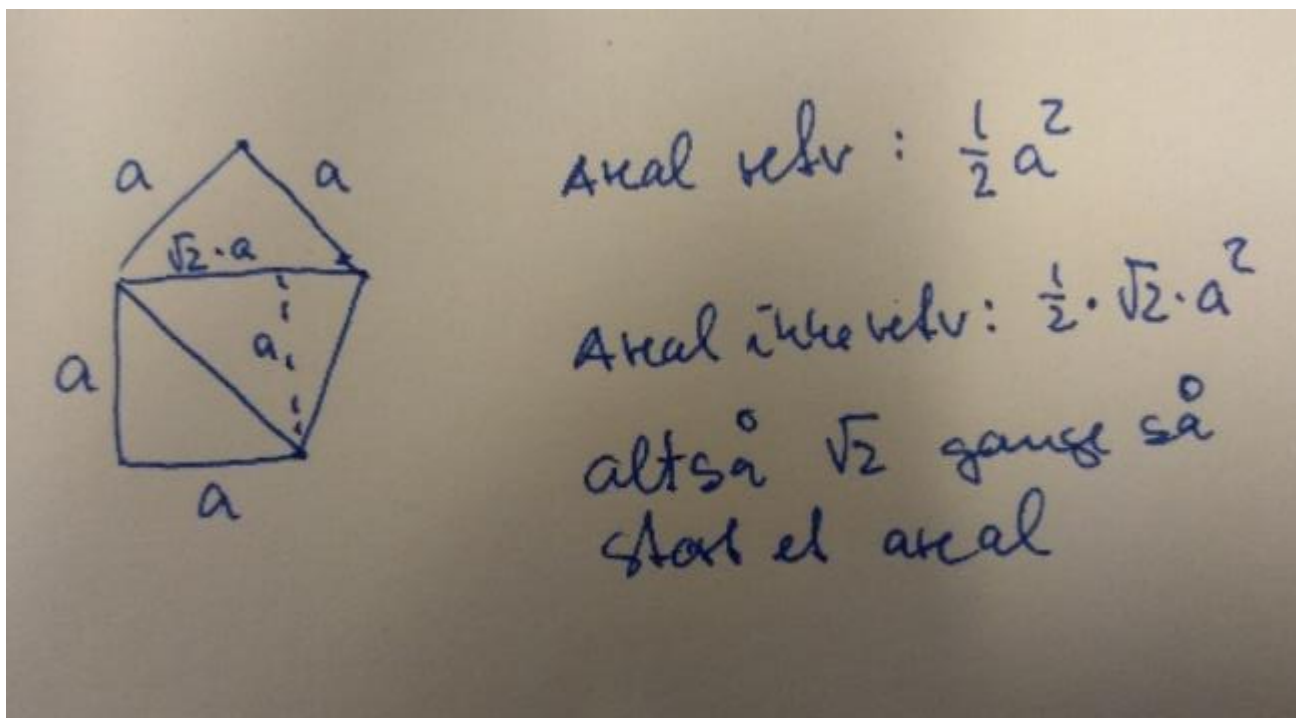 a a
√2·a
a
a
a
Areal retv : 1/2 a²
Areal ikke retv: 1/2 · √2 · a²
altså √2 gange så
stort et areal